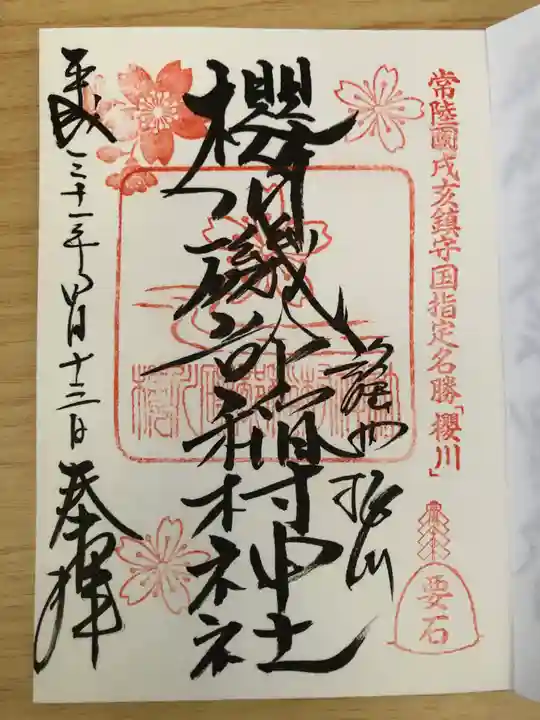 常陸國戌亥鎮守国指定名勝「櫻川」
要石
謡曲 桜川
櫻川磯部稲村神社
平成三十一年四月十三日 奉拝